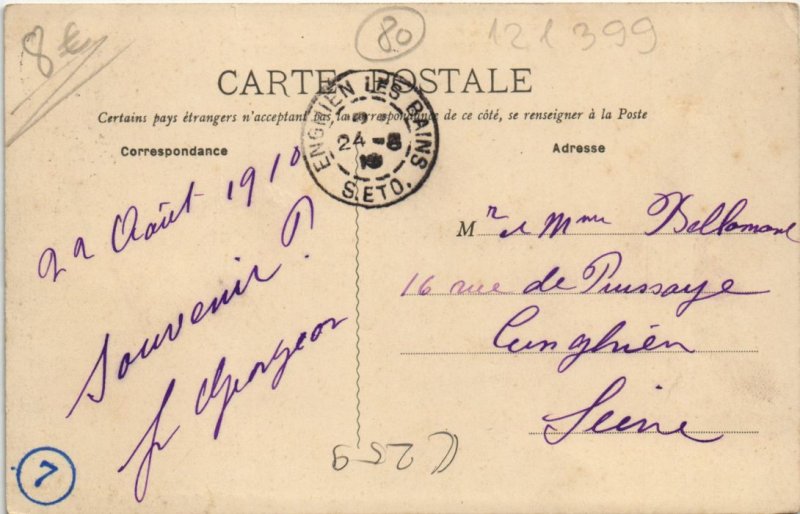 8€
80
121399
CARTE POSTALE
Certains pays étrangers n'acceptant pas la correspondance de ce côté, se renseigner à la Poste
Correspondance
Adresse
ENGHIEN LES BAINS
24-8
10
S.ETO.
22 Août 1910
Souvenir
Georgeon
Mr et Mme Bellamare
16 rue de Puissaye
Enghien
Seine
C259
7